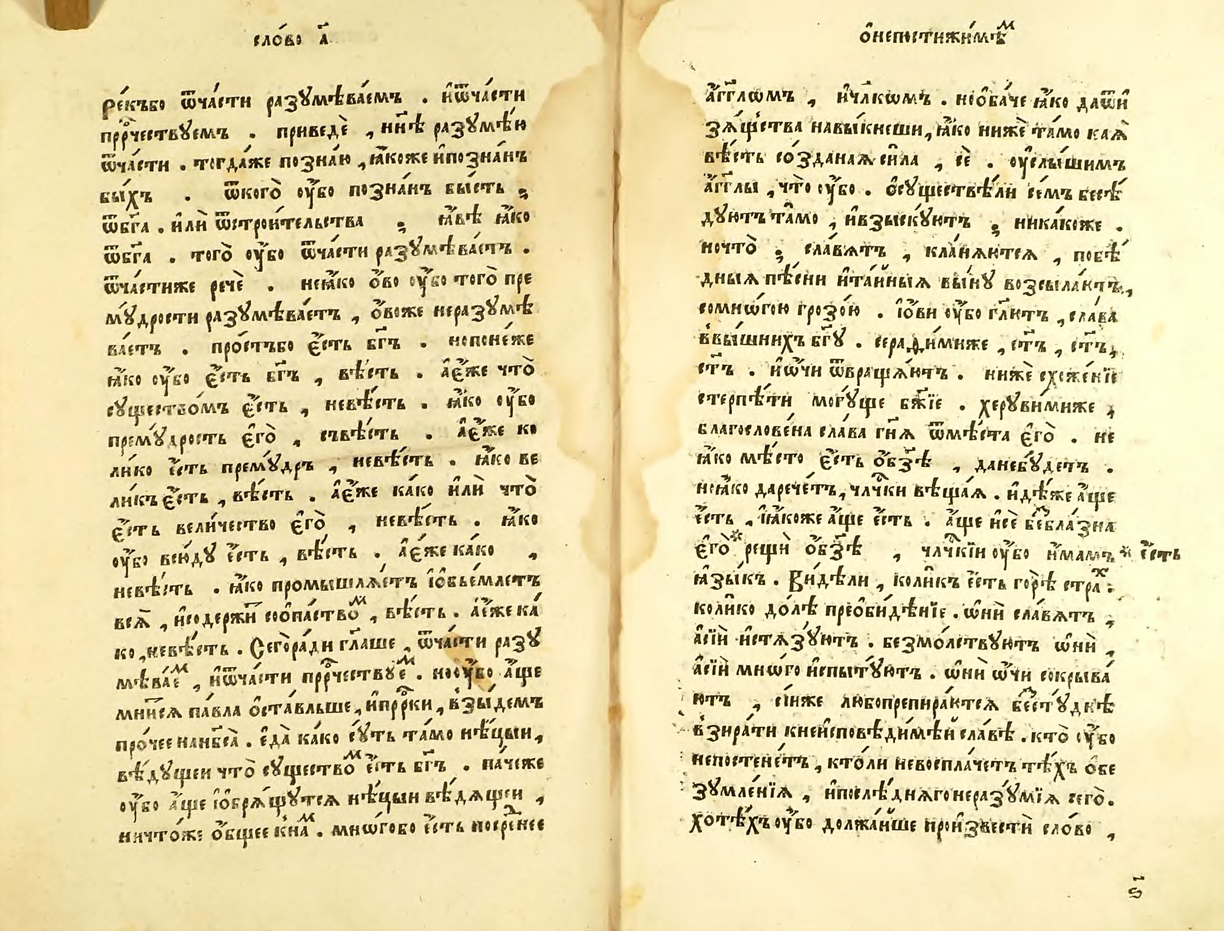 сло́во а҃
ре́къбо ѿча́сти разꙋмѣва́емъ . иѿча́сти
прⷪ҇ро́чествꙋемъ . приведѐ , нн҃ѣ разꙋмѣ́ю
ѿча́сти . тогда́же позна́ю , ꙗ҆́коже и҆позна́нъ
бы́хъ . ѿкогѡ̀ ᲂу҆̀бо позна́нъ бы́сть ,
ѿбг҃а . и҆лѝ ѿстрои́тельства ; ꙗ҆́вѣ ꙗ҆́ко
ѿбг҃а . того̀ ᲂу҆̀бо ѿча́сти разꙋмѣва́етъ .
ѿча́стиже речѐ . неꙗ҆́ко о҆́во ᲂу҆̀бо того̀ пре
мꙋ́дрости разꙋмѣва́етъ , о҆́воже неразꙋмѣ
ва́етъ . про́стъбо є҆́сть бг҃ъ . нопоне́же
ꙗ҆́ко ᲂу҆̀бо є҆́сть бг҃ъ , вѣ́сть . а҆є҆́же что̀
сꙋщество́мъ є҆́сть , невѣ́сть . ꙗ҆́ко ᲂу҆̀бо
премꙋ́дрость є҆гѡ̀ , съвѣ́сть . а҆є҆́же ко
ли́ко є҆́сть премꙋ́дръ , невѣ́сть . ꙗ҆́ко ве
ли́къ є҆́сть , вѣ́сть . а҆є҆́же ка́ко и҆лѝ что̀
є҆́сть вели́чество є҆гѡ̀ , невѣ́сть . ꙗ҆́ко
ᲂу҆̀бо всю́дꙋ є҆́сть , вѣ́сть . а҆є҆́же ка́ко ,
невѣ́сть . ꙗ҆́ко промышлѧ́етъ і҆ѡбъе́млетъ
всѧ̑ , и҆содержи́т соопа́ствоⷨ , вѣ́сть . а҆є҆́же ка́
ко , невѣ́сть . Сегора́ди гл҃аше , ѿча́сти разꙋ
мѣва́еⷨ , и҆ѿча́сти прⷪ҇ро́чествꙋеⷨ . ноᲂу҆̀бо а҆́ще
мни́йсѧ па́вла ѡ҆ста́вльше , и҆прⷪ҇рки , взы́демъ
про́чее нанб҃са̀ . є҆да̀ ка́ко сꙋ́ть та́мо нѣ́цыи ,
вѣ́дꙋщеи что̀ сꙋществоⷨ є҆́сть бг҃ъ . па́чеже
ᲂу҆̀бо а҆́ще і҆ѡбрѧ́щꙋтсѧ нѣ́цыи вѣ́дѧщеи ,
ничто́же ѻ҆́бщее кна́ⷨ . мнѡ́гобо є҆́сть посре́днее
ѡ҆непостижи́мѣⷨ
а҆́гг҃лѡмъ , и҆чл҃кѡмъ . но́ѻба́че ꙗ҆́ко даѿи
зѧ́щества навы́кнеши , ꙗ҆́ко нижѐ та́мо каѧ̀
вѣ́сть со́зданаѧ си́ла , сѐ . ᲂу҆слы́шимъ
а҆́гг҃лы , что̀ ᲂу҆̀бо . ѡ҆сꙋществѣ́ли се́мъ бесѣ́
дꙋютъ та́мо , и҆взы́скꙋютъ ; ника́коже .
ночто̀ ; сла́вѧтъ , кла́нѧютсѧ , побѣ́
дныѧ пѣ́сни и҆та́йныѧ вы́нꙋ возсыла́ютъ ,
сомно́гою грозо́ю . і҆ѡ́ви ᲂу҆̀бо гл҃ютъ , сла́ва
ввы́шнихъ бг҃ꙋ . серафи́миже , ст҃ъ , ст҃ъ ,
ст҃ъ . и҆ѡ҆́чи ѿвраща́ютъ . нижѐ схоже́нїе
стерпѣ́ти могꙋ́ще бж҃їе . херꙋви́миже ,
благослове́на сла́ва гн҃ѧ ѿмѣ́ста є҆гѡ̀ . не
ꙗ҆́ко мѣ́сто є҆́сть ѡ҆бз҃ѣ , данебꙋ́детъ .
неꙗ҆́ко дарече́тъ , чл҃чки вѣща́ѧ . и҆дѣ́же а҆́ще
є҆́сть , и҆ꙗ҆́коже а҆́ще є҆́сть . а҆́ще и҆сѐ без̾бла́зна
є҆гѡ̀* рещѝ ѡ҆бз҃ѣ , чл҃чкїи ᲂу҆̀бо и҆́мамъ * є҆́сть
ꙗ҆зы́къ . Ви́дѣли , коли́къ є҆́сть горѣ̀ стра́ⷯ .
коли́ко до́лѣ преѻби́дѣнїе . ѡ҆нѝ сла́вѧтъ ,
а҆сїи и҆стѧзꙋ́ютъ . безмо́лствꙋютъ ѡ҆нѝ ,
а҆сїи мнѡ́го и҆спытꙋ́ютъ . ѡ҆нѝ ѡ҆́чи сокрыва́
ютъ , сі́иже любопрепира́ютсѧ безстꙋ́днѣ
взира́ти кнеи҆сповѣди́мѣй сла́вѣ . кто̀ ᲂу҆̀бо
непостене́тъ , кто́ли невоспла́четъ тѣ́хъ ѻ҆бе
зꙋмле́нїѧ , и҆послѣ́днѧгонеразꙋ́мїѧ сего̀ .
хотѣ́хъ ᲂу҆̀бо должа́йше произвестѝ сло́во ,
ѕ҃